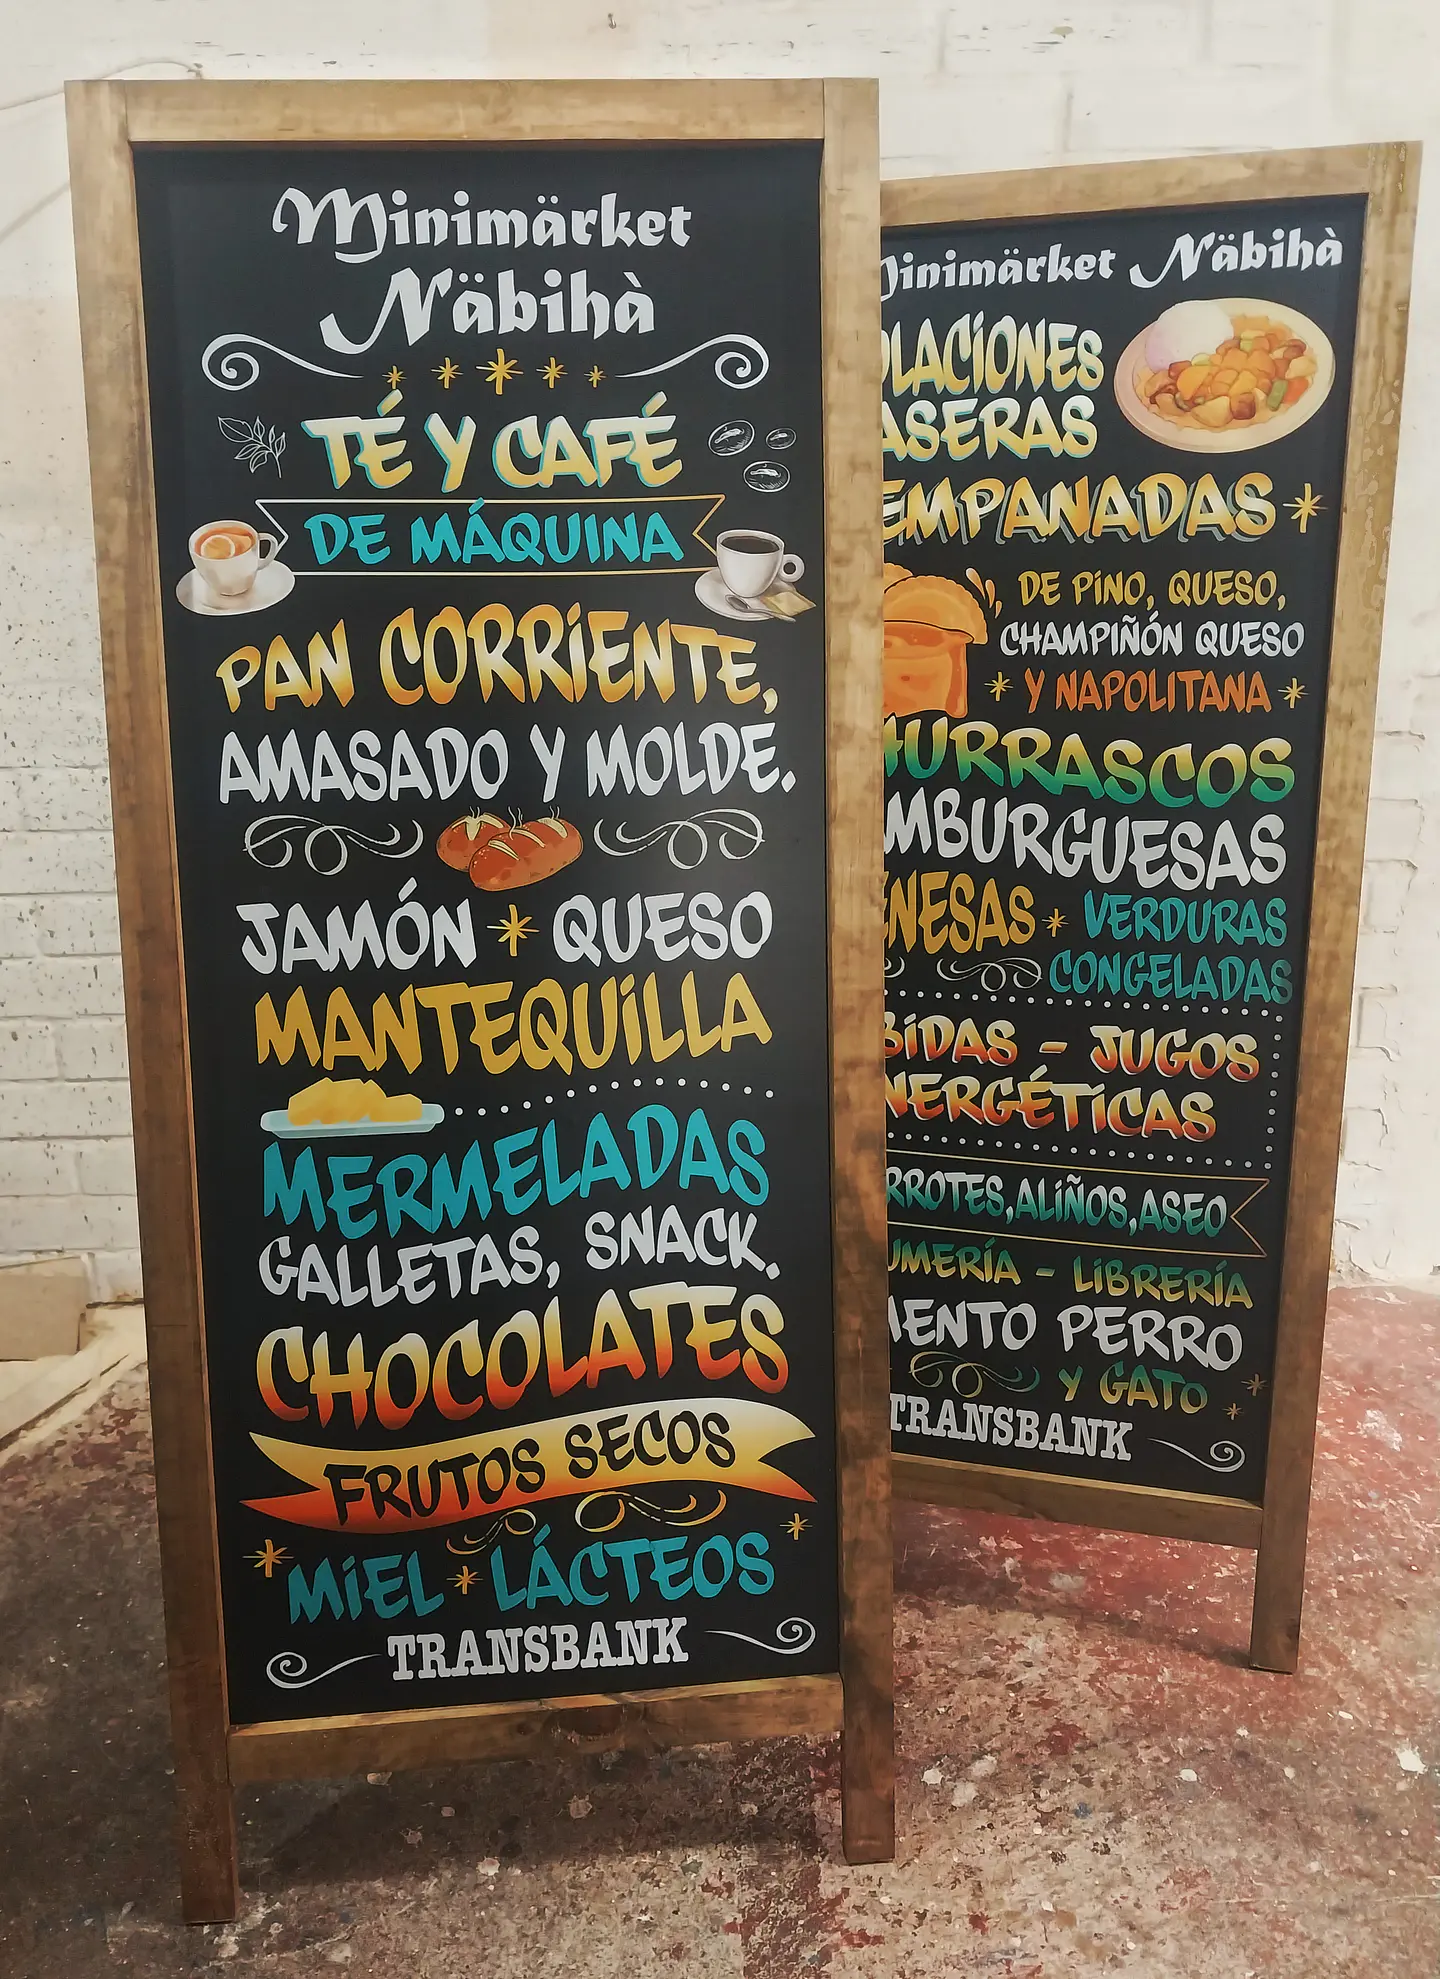 Minimärket
Näbihà
TÉ Y CAFÉ
DE MÁQUINA
PAN CORRIENTE,
AMASADO Y MOLDE.
JAMÓN * QUESO
MANTEQUILLA
MERMELADAS
GALLETAS, SNACK.
CHOCOLATES
FRUTOS SECOS
MIEL * LÁCTEOS
TRANSBANK
Minimärket Näbihà
OLACIONES
ASERAS
EMPANADAS
DE PINO, QUESO,
CHAMPIÑÓN QUESO
Y NAPOLITANA
HURRASCOS
MBURGUESAS
ENESAS * VERDURAS
CONGELADAS
BIDAS - JUGOS
NERGÉTICAS
RROTES, ALIÑOS, ASEO
UMERÍA - LIBRERÍA
MENTO PERRO
Y GATO
TRANSBANK